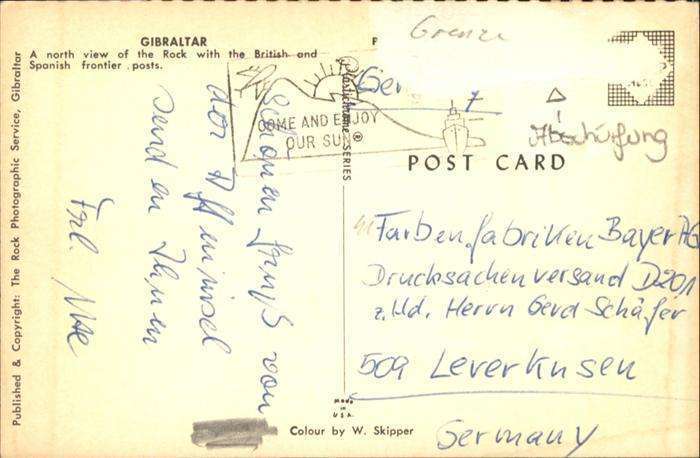 GIBRALTAR
A north view of the Rock with the British and
Spanish frontier posts.
Published & Copyright: The Rock Photographic Service, Gibraltar
Schönen Gruß von
der Affeninsel
senden Ihnen
Frl.
COME AND ENJOY
OUR SUN
Plastichrome® SERIES
Grenze
Ger
7
Abschürfung
POST CARD
Farbenfabriken Bayer AG
Drucksachenversand D201
z.Hd. Herrn Gerd Schäfer
509 Leverkusen
Germany
MADE
IN
U.S.A.
Colour by W. Skipper